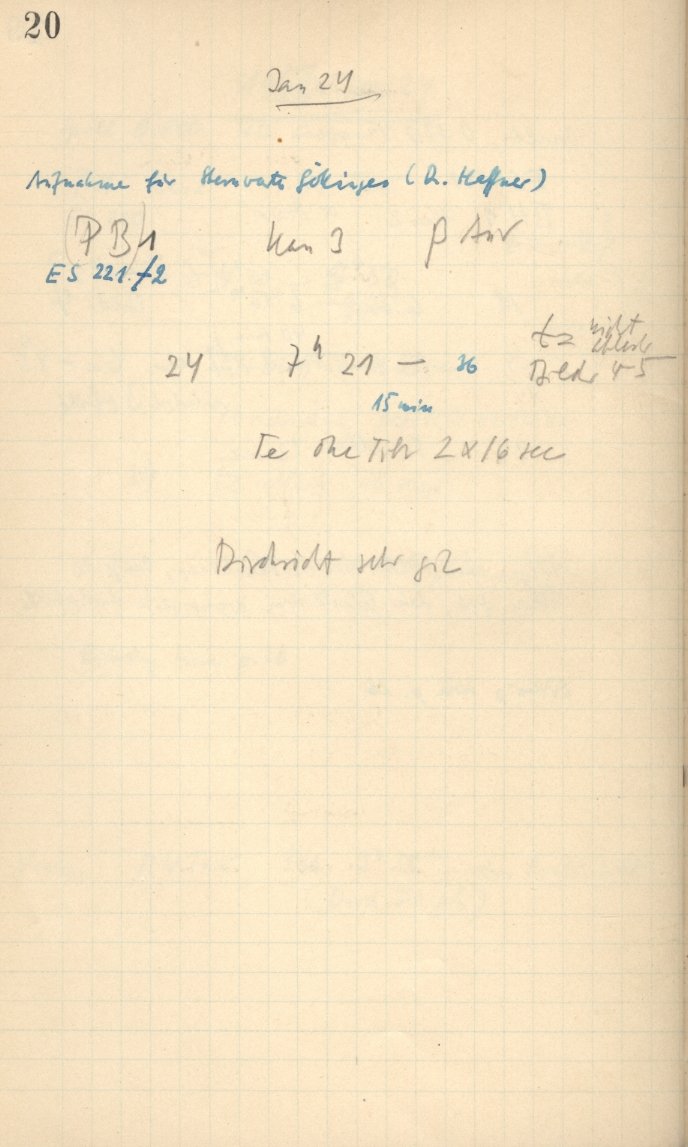 20
Jan 24
Aufnahme für Sternwarte Göttingen (Dr. Haffner)
(PB)1 Kam 3 β Aur
ES 221.f2
24 7h 21 — 36 t = nicht
Bilder 4-5
15 min
Te ohne Filter 2 x 16 sec
Durchsicht sehr gut